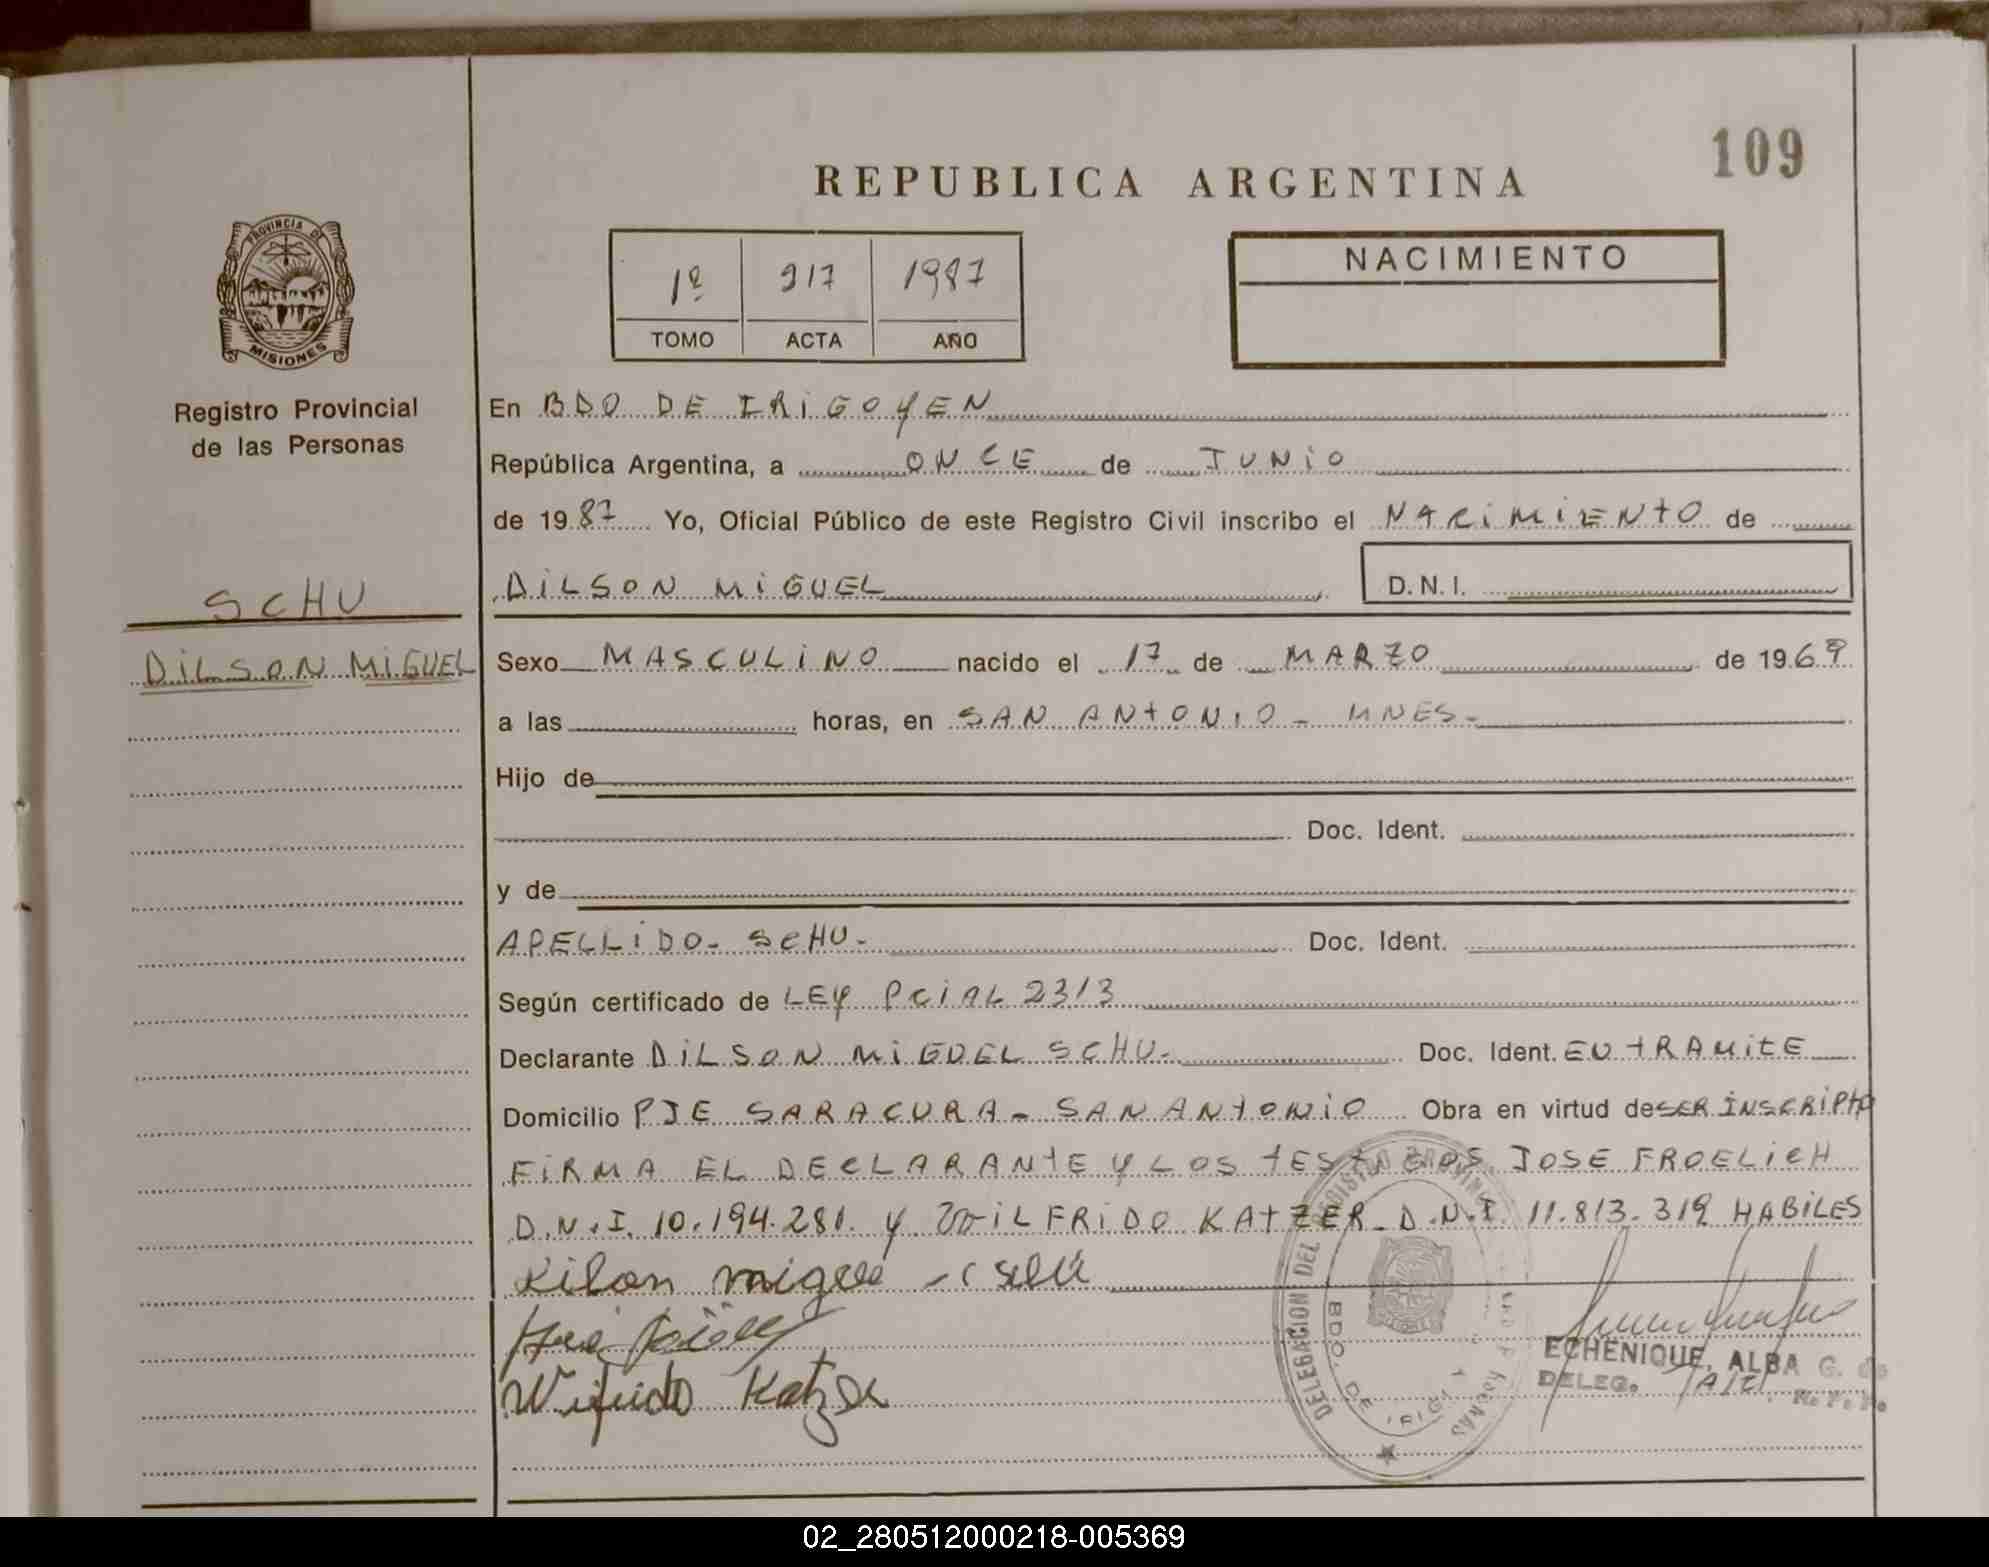 109
REPUBLICA ARGENTINA
PROVINCIA DE
MISIONES
Registro Provincial
de las Personas
1º 217 1987
TOMO ACTA AÑO
NACIMIENTO
En BDO DE IRIGOYEN
República Argentina, a ONCE de JUNIO
de 1987 Yo, Oficial Público de este Registro Civil inscribo el NACIMIENTO de
DILSON MIGUEL D.N.I.
SCHU
DILSON MIGUEL
Sexo MASCULINO nacido el 17 de MARZO de 1969
a las horas, en SAN ANTONIO - MNES-
Hijo de
Doc. Ident.
y de
APELLIDO- SCHU- Doc. Ident.
Según certificado de LEY PCIAL 2313
Declarante DILSON MIGUEL SCHU- Doc. Ident. EN TRAMITE
Domicilio PJE SARACURA - SAN ANTONIO Obra en virtud de SER INSCRIPTO
FIRMA EL DECLARANTE Y LOS TESTIGOS JOSE FROELICH
D.N.I. 10.194.281. Y WILFRIDO KATZER- D.N.I. 11.813.319 HABILES
Wifrido Katzer
DELEGACION DEL
BDO. DE IRIG
ECHENIQUE, ALBA G. de
DELEG.
R. P. P.
02_280512000218-005369